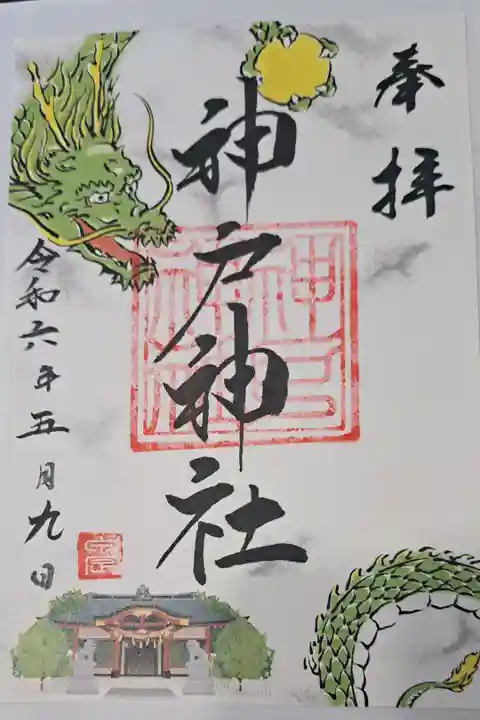 奉拝
神戸神社
令和六年五月九日